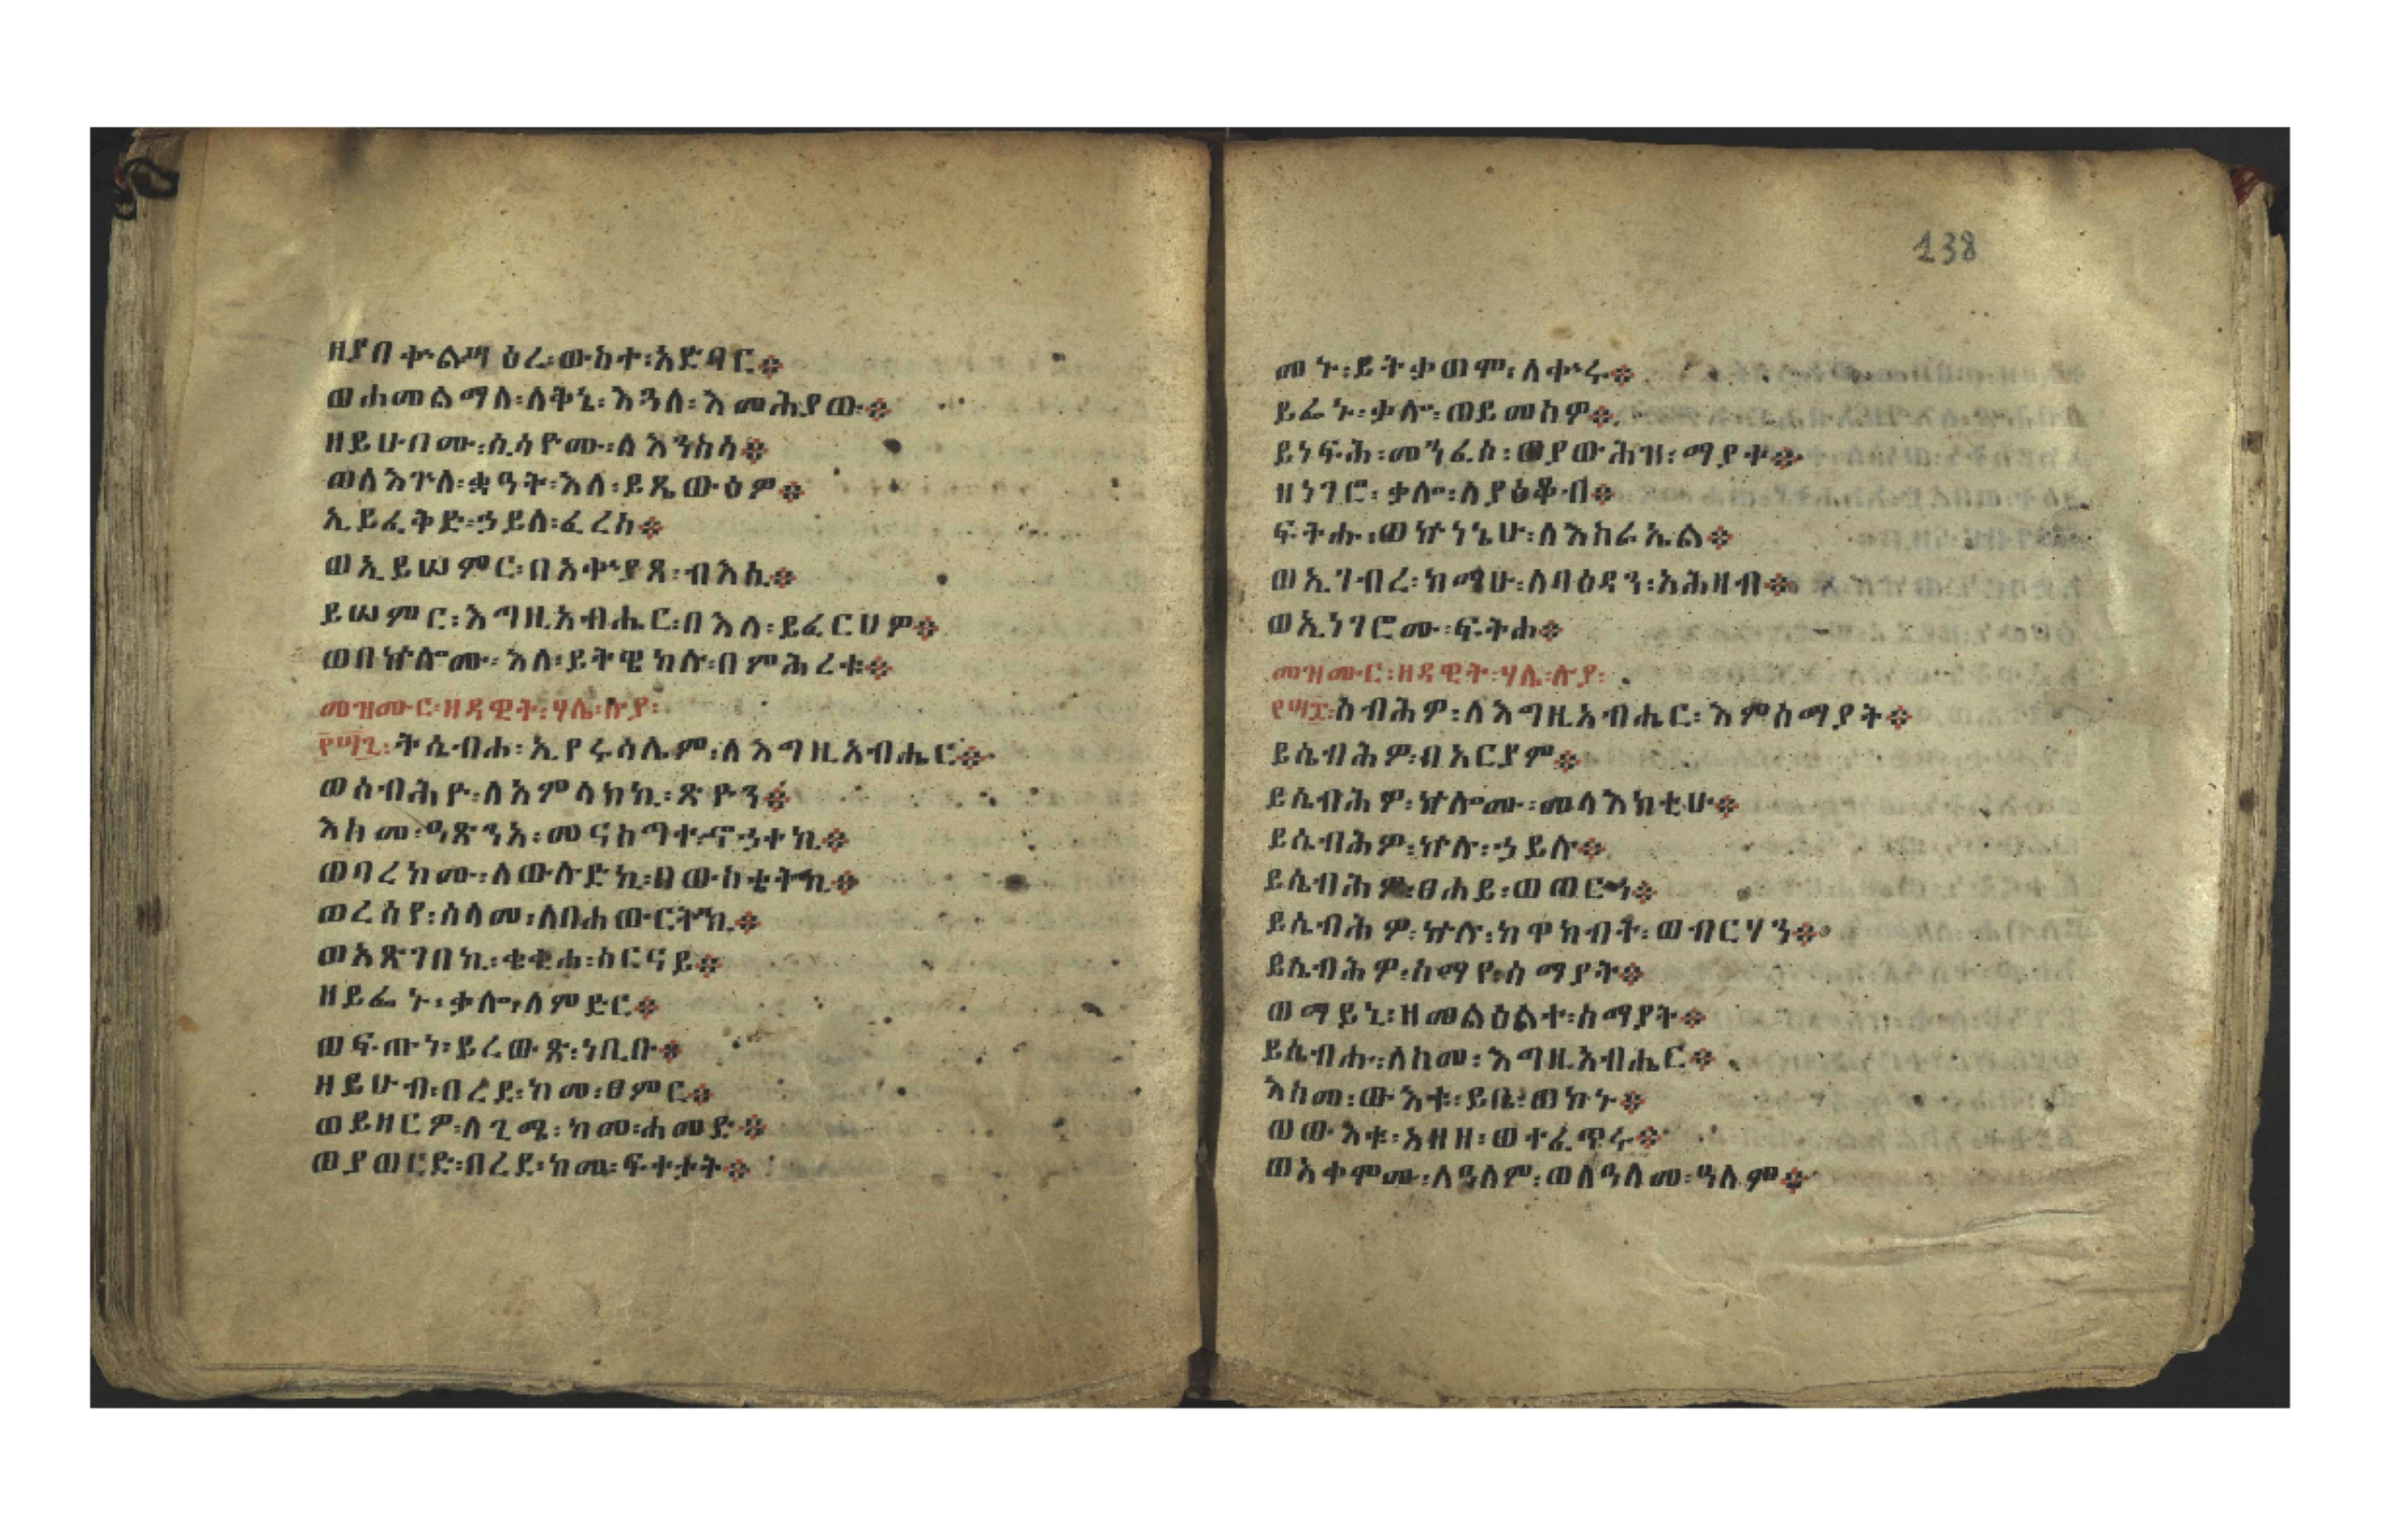 ዘያበቍልሣዕረ፡ውስተ፡አድባር።
ወሐመልማለ፡ለቅኔ፡እጓለ፡እመሕያው።
ዘይሁቦሙ፡ሲሳዮሙ፡ለእንስሳ።
ወለእጕለ፡ቋዓት፡እለ፡ይጼውዕዎ።
ኢይፈቅድ፡ኃይለ፡ፈረስ።
ወኢይሠምር፡በአቍያጸ፡ብእሲ።
ይሠምር፡እግዚአብሔር፡በእለ፡ይፈርህዎ።
ወበኵሎሙ፡እለ፡ይትዌከሉ፡በምሕረቱ።
መዝሙር፡ዘዳዊት፡ሃሌ፡ሉያ፡
፻፵፯፡ትሴብሐ፡ኢየሩሳሌም፡ለእግዚአብሔር።
ወሰብሕዮ፡ለአምላክኪ፡ጽዮን።
እስመ፡ዓጽንአ፡መናስግተ፡ኖኃተኪ።
ወባረከሙ፡ለውሉድኪ፡በውስቴትኪ።
ወረሰየ፡ሰላመ፡ለበሐውርትኪ።
ወአጽገበኪ፡ቄቂሐ፡ስርናይ።
ዘይፌኑ፡ቃሎ፡ለምድር።
ወፍጡነ፡ይረውጽ፡ነቢቡ።
ዘይሁብ፡በረደ፡ከመ፡ፀምር።
ወይዘርዎ፡ለጊሜ፡ከመ፡ሐመድ።
ወያወርድ፡በረደ፡ከመ፡ፍተታት።
138
መኑ፡ይትቃወሞ፡ለቍሩ።
ይፌኑ፡ቃሎ፡ወይመስዎ።
ይነፍሕ፡መንፈሰ፡ወያውሕዝ፡ማያተ።
ዘነገሮ፡ቃሎ፡ለያዕቆብ።
ፍትሑ፡ወኵነኔሁ፡ለእስራኤል።
ወኢገብረ፡ከማሁ፡ለባዕዳን፡አሕዛብ።
ወኢነገሮሙ፡ፍትሐ።
መዝሙር፡ዘዳዊት፡ሃሌ፡ሉያ፡
ሰብሕዎ፡ለእግዚአብሔር፡እምሰማያት።
ይሴብሕዎ፡በአርያም።
ይሴብሕዎ፡ኵሎሙ፡መላእክቲሁ።
ይሴብሕዎ፡ኵሉ፡ኃይሉ።
ይሴብሕዎ፡ፀሐይ፡ወወርኅ።
ይሴብሕዎ፡ኵሉ፡ከዋክብት፡ወብርሃን።
ይሴብሕዎ፡ሰማየ፡ሰማያት።
ወማይኒ፡ዘመልዕልተ፡ሰማያት።
ይሴብሑ፡ለስመ፡እግዚአብሔር።
እስመ፡ውእቱ፡ይቤ፡ወኮኑ።
ወውእቱ፡አዘዘ፡ወተፈጥሩ።
ወአቀሞሙ፡ለዓለም፡ወለዓለመ፡ዓለም።